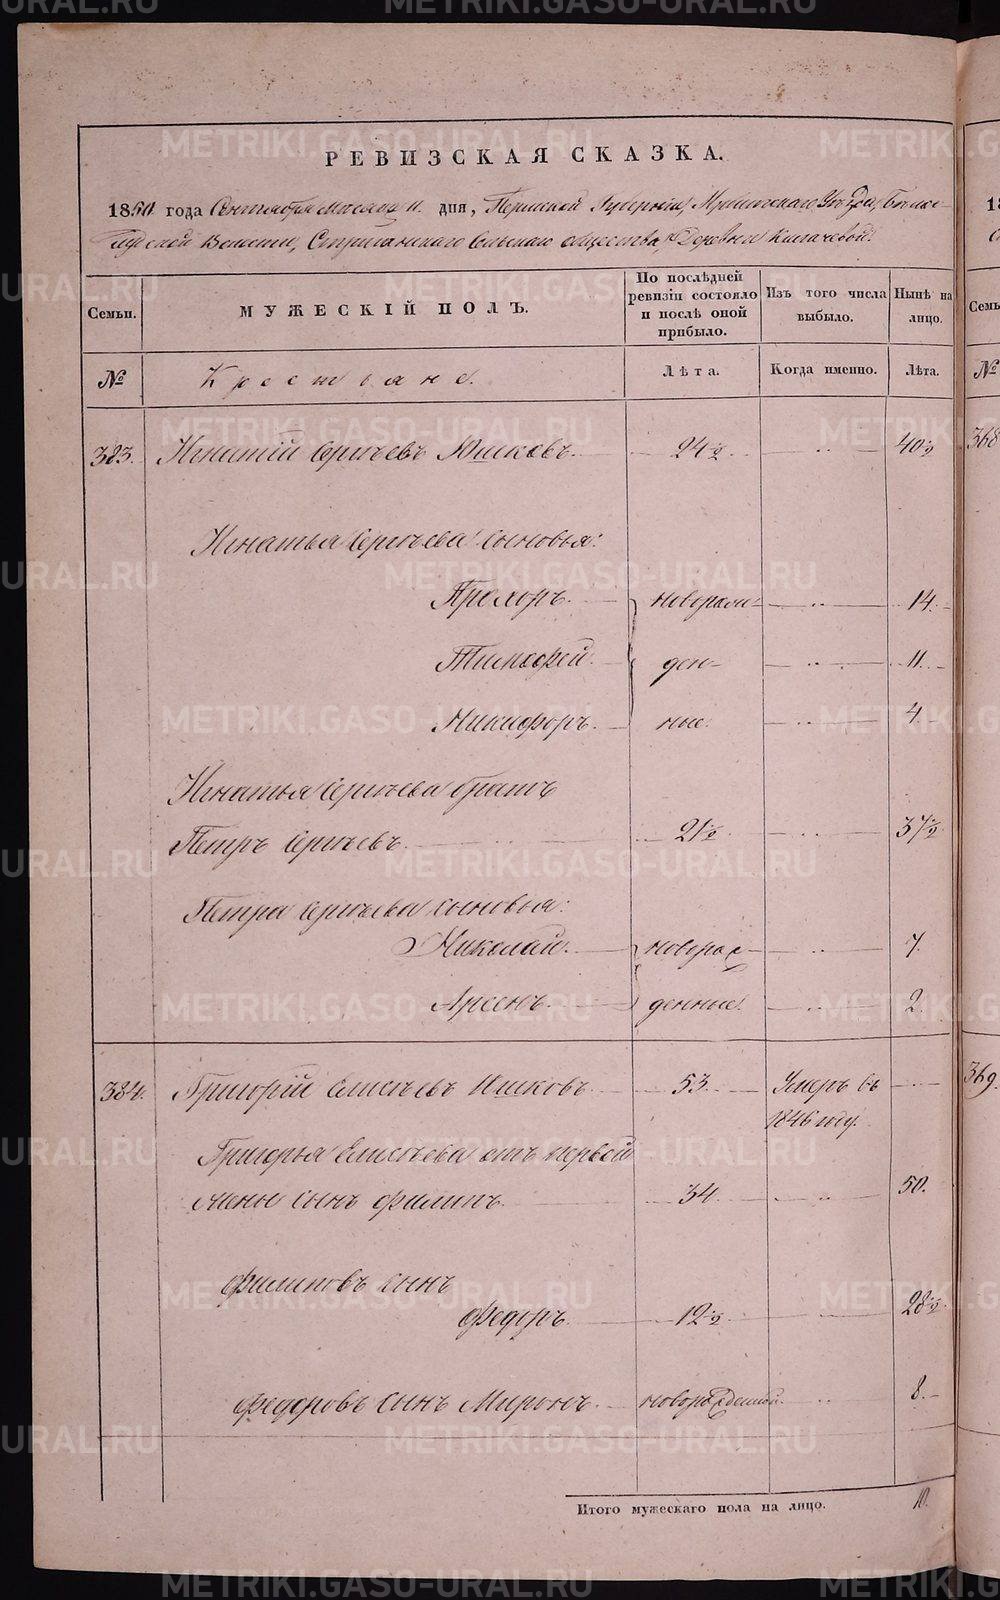 РЕВИЗСКАЯ СКАЗКА.
1850 года Сентября месяца 11 дня, Пермской Губернии, Ирбитскаго Уезда,
Волости, Стриганскаго Сельскаго общества, Деревни
Семьи.
МУЖЕСКІЙ ПОЛЪ.
По послѣдней ревизіи состояло и послѣ оной прибыло.
Изъ того числа выбыло.
Нынѣ на лицо.
№
Крестьяне.
Лѣта.
Когда именно.
Лѣта.
383. Игнатій Сергѣевъ Юшковъ. 24½ 40½
Игнатья Сергѣева сыновья:
Прохоръ. новорож- 14.
Тимофей. ден- 11.
Никифоръ. ные. 4.
Игнатья Сергѣева братъ
Петръ Сергѣевъ. 21½ 37½
Петра Сергѣева сыновья:
Николай. новорож- 7.
Арсенъ. денные. 2.
384. Григорій Елисѣевъ Юшковъ. 53. Умеръ въ
1846 году.
Григорья Елисѣева отъ первой
жены сынъ Филипъ. 34. 50.
Филиповъ сынъ
Федоръ. 12½ 28½
Федоровъ сынъ Миронъ. новорожденной. 8.
Итого мужескаго пола на лицо. 10.
368
369.
METRIKI.GASO-URAL.RU